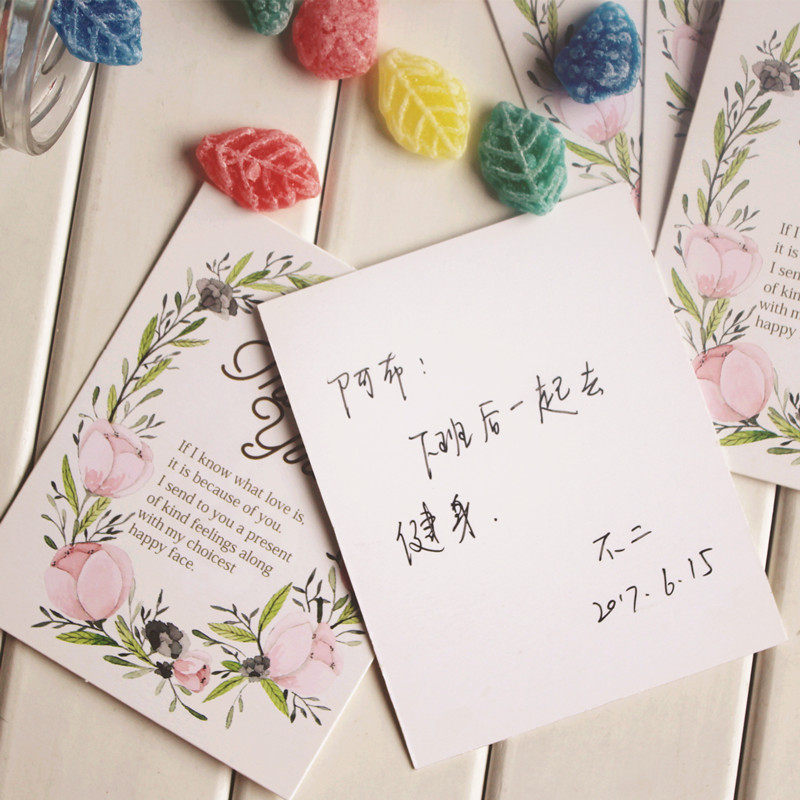 Yo
If I know what love is,
it is because of you.
I send to you a present
of kind feelings along
with my choicest
happy face.
阿布：
下班后一起去
健身.
不二
2017.6.15
If I
it is
I send
of kin
with m
happy